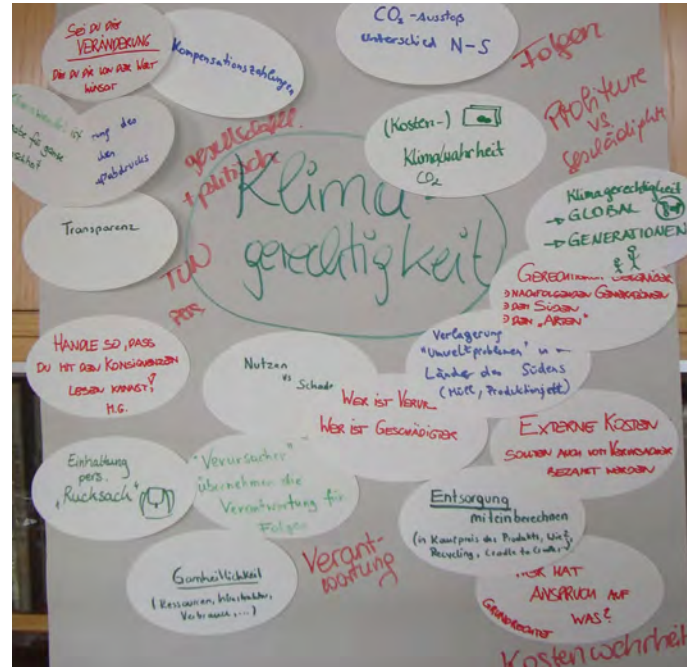 SEI DU DIE
VERÄNDERUNG
DIE DU DIR VON DER WELT
WÜNSCHT
Kompensationszahlungen
CO₂-Ausstoß
Unterschied N-S
Folgen
Profiteure
vs
Geschädigte
(Kosten-)
Klimawahrheit
CO₂
gesellschaftl.
+ politisch
Klima-
gerechtigkeit
Klimagerechtigkeit
→ GLOBAL
→ GENERATIONEN
Transparenz
TUN
GERECHTIGKEIT GEGENÜBER
NACHFOLGENDEN GENERATIONEN
DEM SÜDEN
DEN „ARTEN"
HANDLE SO, DASS
DU MIT DEN KONSEQUENZEN
LEBEN KANNST!
M.G.
Nutzen
vs
Schade
Verlagerung
"Umweltproblemen" in
Länder des Südens
(Müll, Produktion, etc)
WER IST VERUR
WER IST GESCHÄDIGTER
EXTERNE KOSTEN
SOLLTEN AUCH VOM VERURSACHER
BEZAHLT WERDEN
Einhaltung
pers.
„Rucksack"
"Verursacher"
übernehmen die
Verantwortung für
Folgen
Entsorgung
miteinberechnen
(in Kaufpreis des Produkts,
Recycling, Cradle to Cradle)
Ganzheitlichkeit
(Ressourcen, Infrastruktur,
Verbrauch, ...)
Verant-
wortung
WER HAT
ANSPRUCH AUF
WAS?
GRUNDRECHTE
Kostenwahrheit